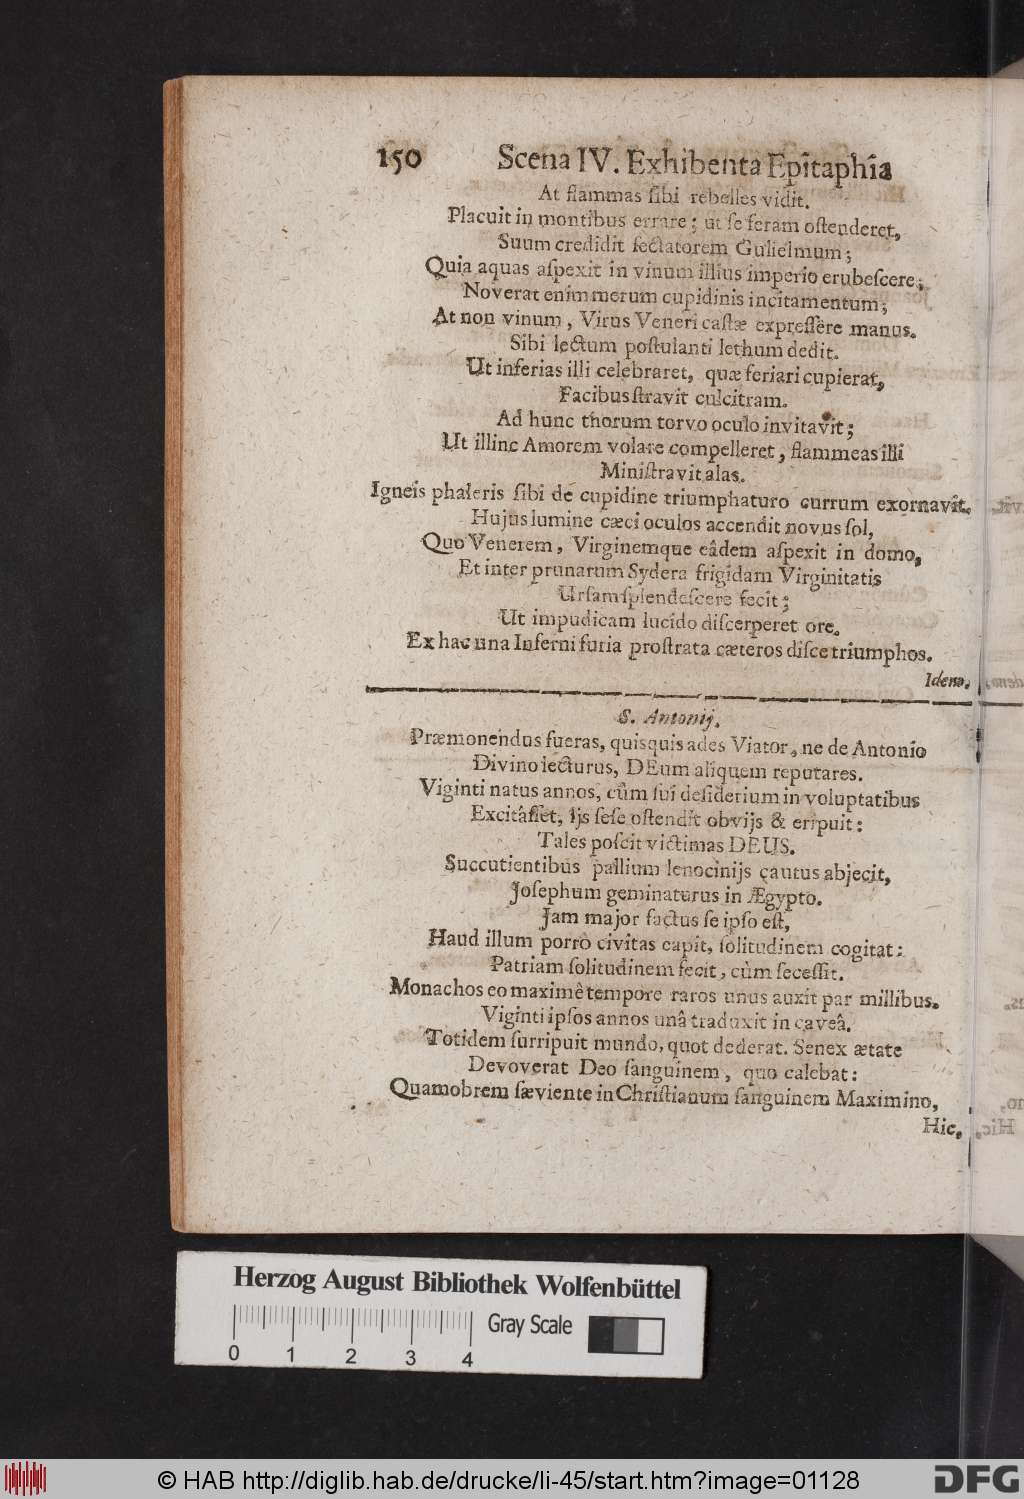 150 Scena IV. Exhibenta Epitaphia
At flammas sibi rebelles vidit.
Placuit in montibus errare; ut se feram ostenderet,
Suum credidit sectatorem Gulielmum;
Quia aquas aspexit in vinum illius imperio erubescere;
Noverat enim merum cupidinis incitamentum;
At non vinum, Virus Veneri castæ expressêre manus.
Sibi lectum postulanti lethum dedit.
Ut inferias illi celebraret, quæ feriari cupierat,
Facibus stravit culcitram.
Ad hunc thorum torvo oculo invitavit;
Ut illinc Amorem volare compelleret, flammeas illi
Ministravit alas.
Igneis phaleris sibi de cupidine triumphaturo currum exornavit.
Hujus lumine cæci oculos accendit novus sol,
Quo Venerem, Virginemque eâdem aspexit in domo,
Et inter prunarum Sydera frigidam Virginitatis
Ursam splendescere fecit;
Ut impudicam lucido discerperet ore.
Ex hac una Inferni furia prostrata cæteros disce triumphos.
Idem.
S. Antonij.
Præmonendus fueras, quisquis ades Viator, ne de Antonio
Divino lecturus, DEum aliquem reputares.
Viginti natus annos, cûm sui desiderium in voluptatibus
Excitâsset, Ijs sese ostendit obvijs & eripuit:
Tales poscit victimas DEUS.
Succutientibus pallium lenocinijs cautus abjecit,
Josephum geminaturus in Ægypto.
Jam major factus se ipso est,
Haud illum porrò civitas capit, solitudinem cogitat:
Patriam solitudinem fecit, cùm secessit.
Monachos eo maximê tempore raros unus auxit par millibus.
Viginti ipsos annos unâ traduxit in caveâ.
Totidem surripuit mundo, quot dederat. Senex ætate
Devoverat Deo sanguinem, quo calebat:
Quamobrem sæviente in Christianum sanguinem Maximino,
Hic,
Herzog August Bibliothek Wolfenbüttel
Gray Scale
0 1 2 3 4
© HAB http://diglib.hab.de/drucke/li-45/start.htm?image=01128
DFG